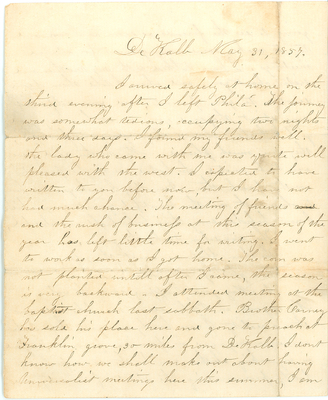 De Kalb May 31, 1857.
I arrived safely at home on the
third evening after I left Phila. The journey
was somewhat tedious, occupying two nights
and three days. I found my friends well.
the lady who came with me was quite well
pleased with the west. I expected to have
written to you before now but I have not
had much chance. The meeting of friends
and the rush of business at this season of the
year has left little time for writing. I went
to work as soon as I got home. The corn was
not planted untill after I came, the season
is very backward. I attended meeting at the
baptist church last sabbath. Brother
has sold his place here and gone to preach at
Franklin grove, 30 miles from De Kalb I dont
know how we shall make out about having
Universalist meetings here this summer, I am